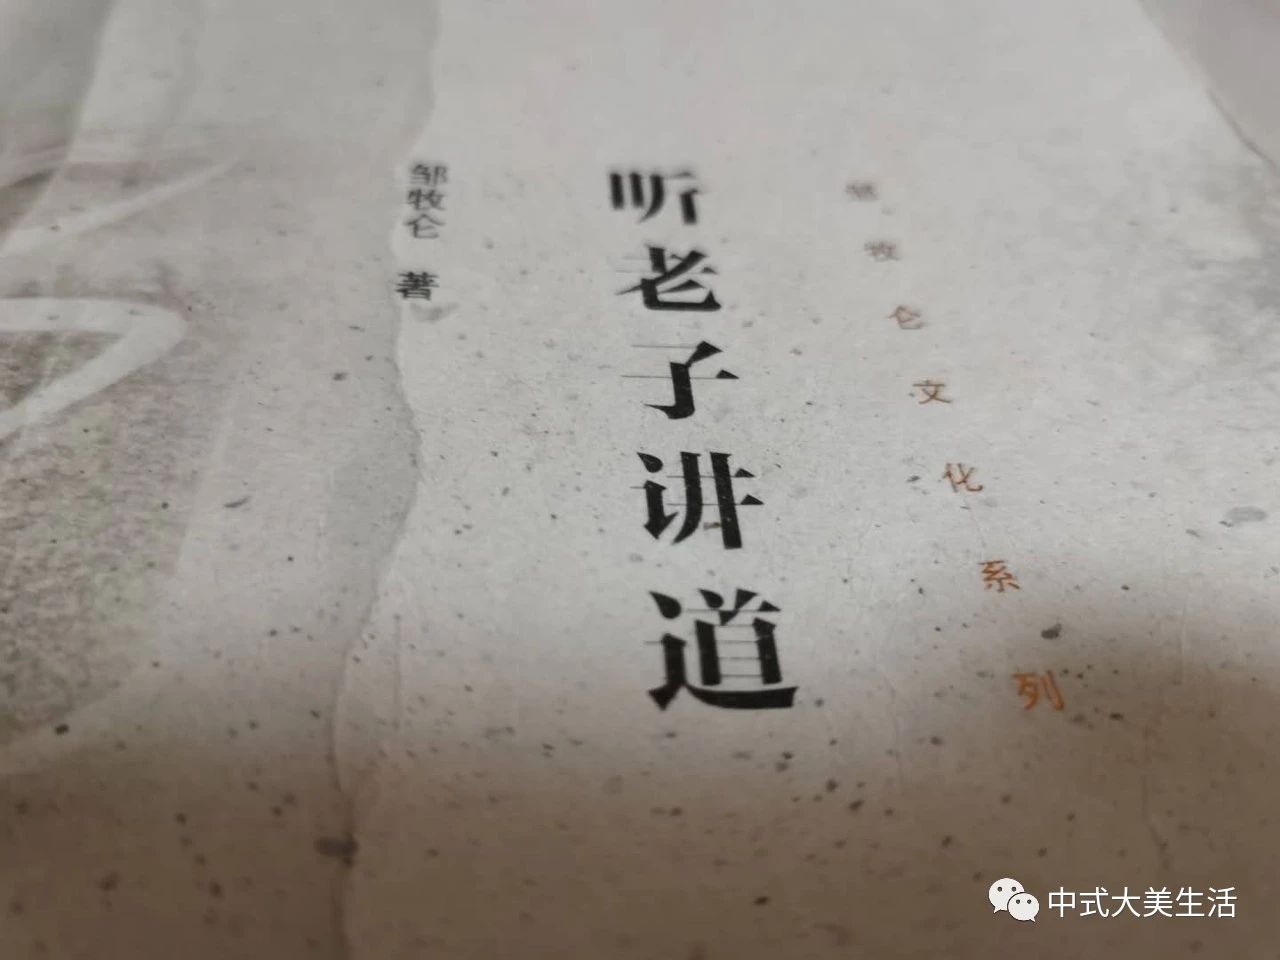 邹牧仑 著
听老子讲道
牧仑文化系列
中式大美生活